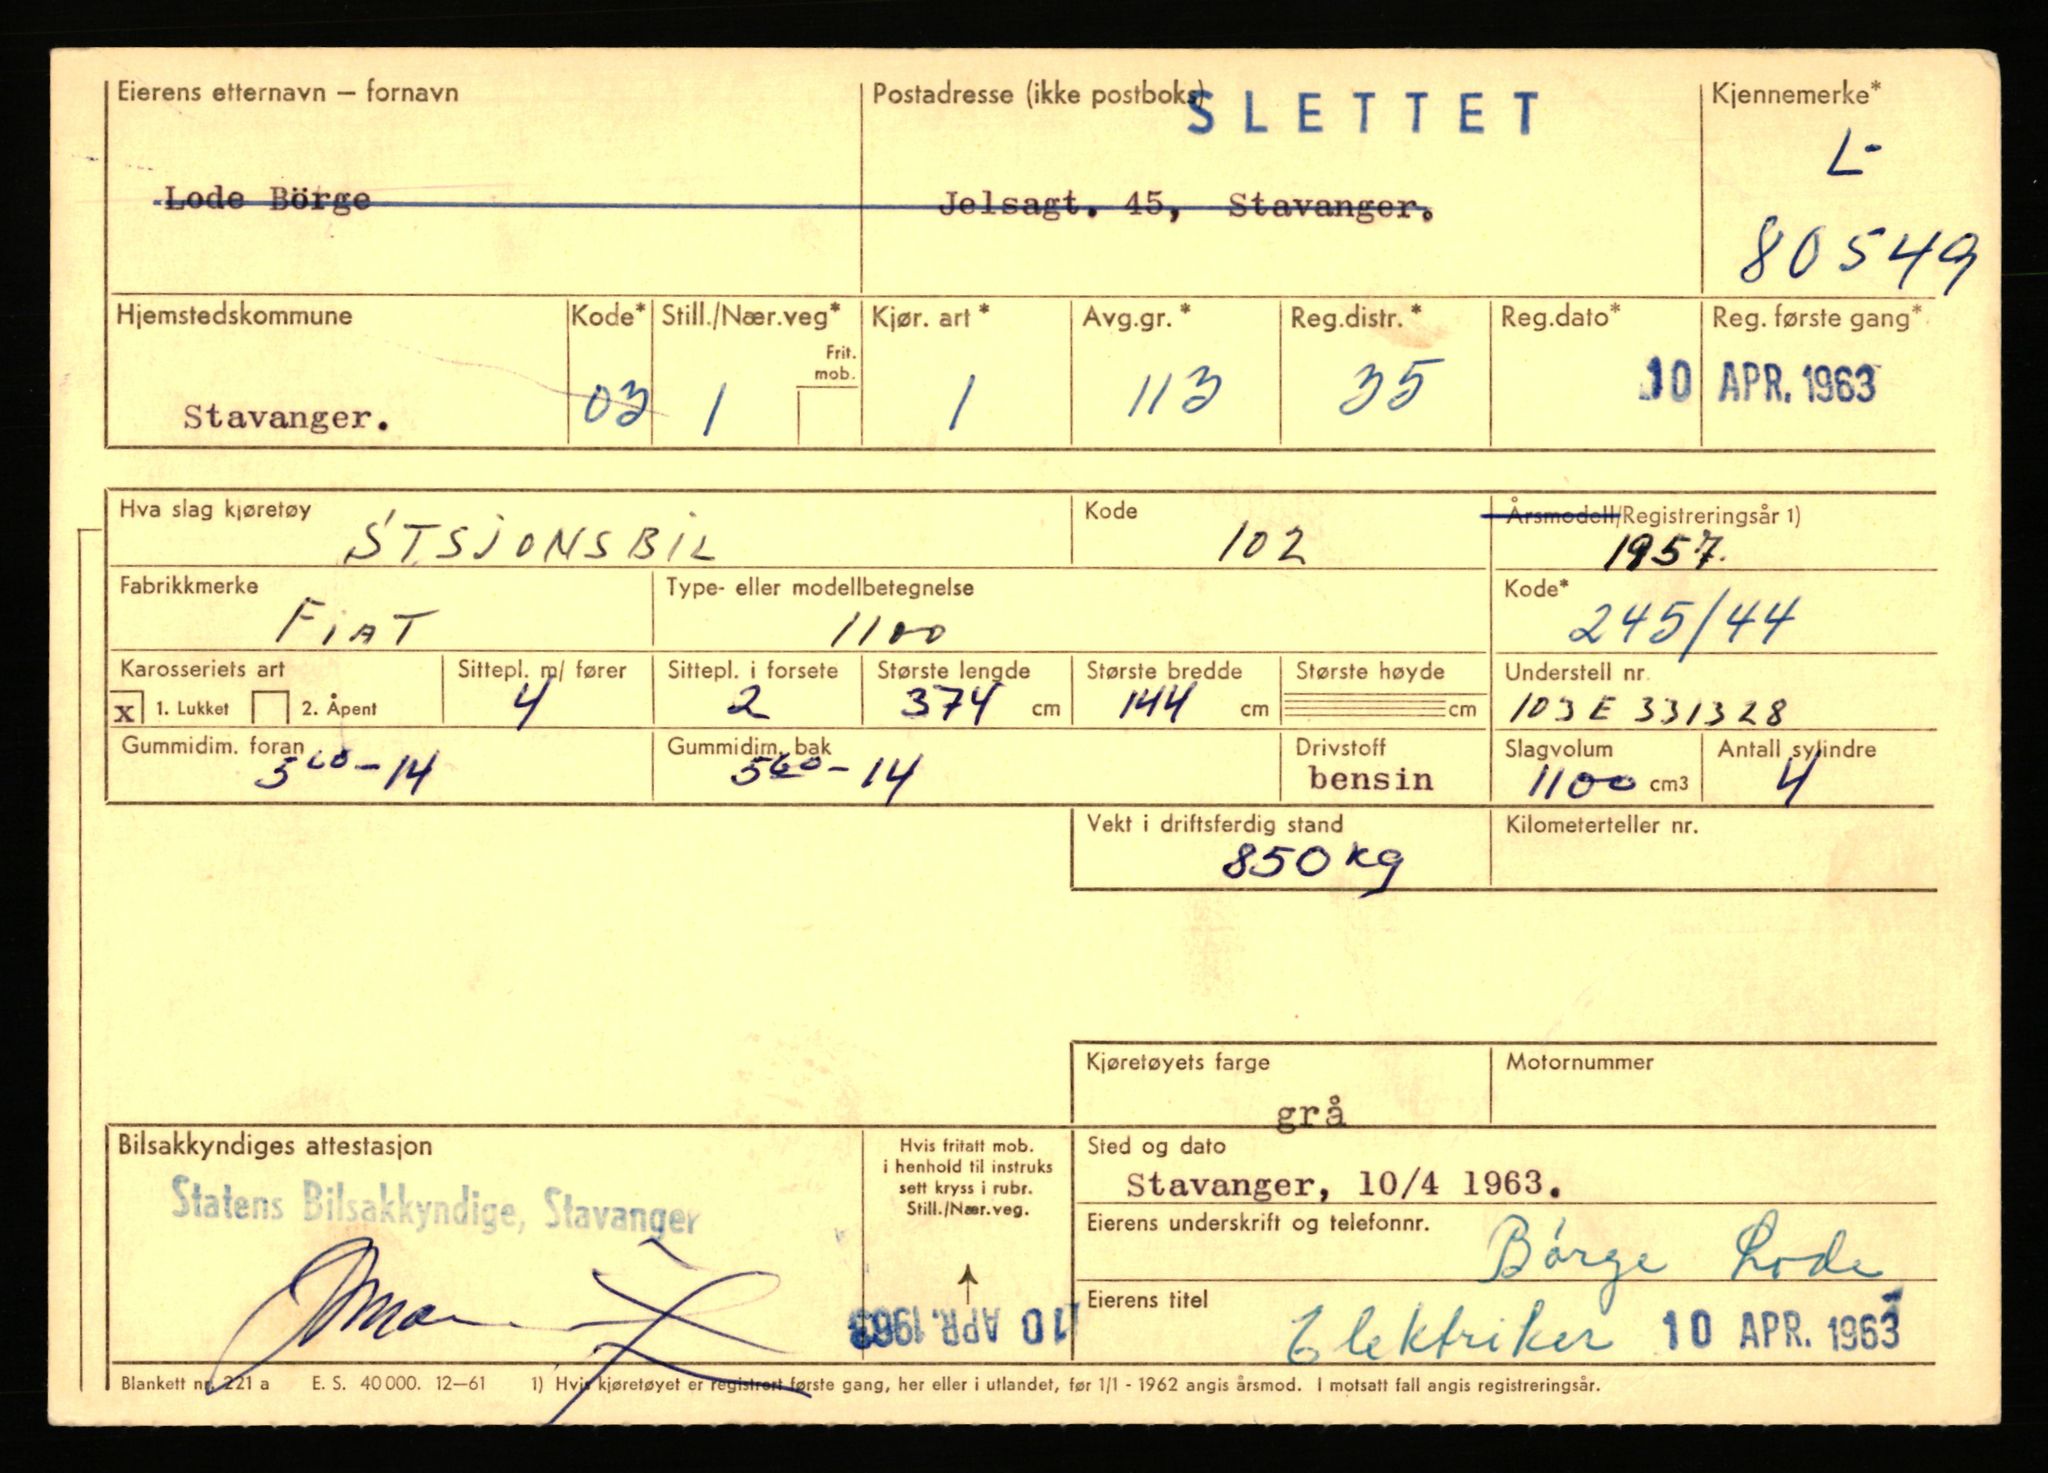 Eierens etternavn — fornavn
Postadresse (ikke postboks)
SLETTET
Kjennemerke*
L-
80549
Lode Börge
Jelsagt. 45, Stavanger.
Hjemstedskommune
Kode*
Still./Nær.veg*
Frit. mob.
Kjør. art *
Avg.gr. *
Reg.distr. *
Reg.dato*
Reg. første gang*
Stavanger.
03
1
1
113
35
10 APR. 1963
Hva slag kjøretøy
STSJONSBIL
Kode
102
Årsmodell/Registreringsår 1)
1957.
Fabrikkmerke
FiAT
Type- eller modellbetegnelse
1100
Kode*
245/44
Karosseriets art
x 1. Lukket
2. Åpent
Sittepl. m/ fører
4
Sittepl. i forsete
2
Største lengde
374 cm
Største bredde
144 cm
Største høyde
cm
Understell nr.
103 E 331328
Gummidim. foran
560-14
Gummidim. bak
560-14
Drivstoff
bensin
Slagvolum
1100 cm3
Antall sylindre
4
Vekt i driftsferdig stand
850 kg
Kilometerteller nr.
Kjøretøyets farge
grå
Motornummer
Bilsakkyndiges attestasjon
Statens Bilsakkyndige, Stavanger
Hvis fritatt mob.
i henhold til instruks
sett kryss i rubr.
Still./Nær.veg.
10 APR. 1963
Sted og dato
Stavanger, 10/4 1963.
Eierens underskrift og telefonnr.
Börge Lode
Eierens titel
Elektriker
10 APR. 1963
Blankett nr. 221 a E. S. 40 000. 12—61 1) Hvis kjøretøyet er registrert første gang, her eller i utlandet, før 1/1 - 1962 angis årsmod. I motsatt fall angis registreringsår.